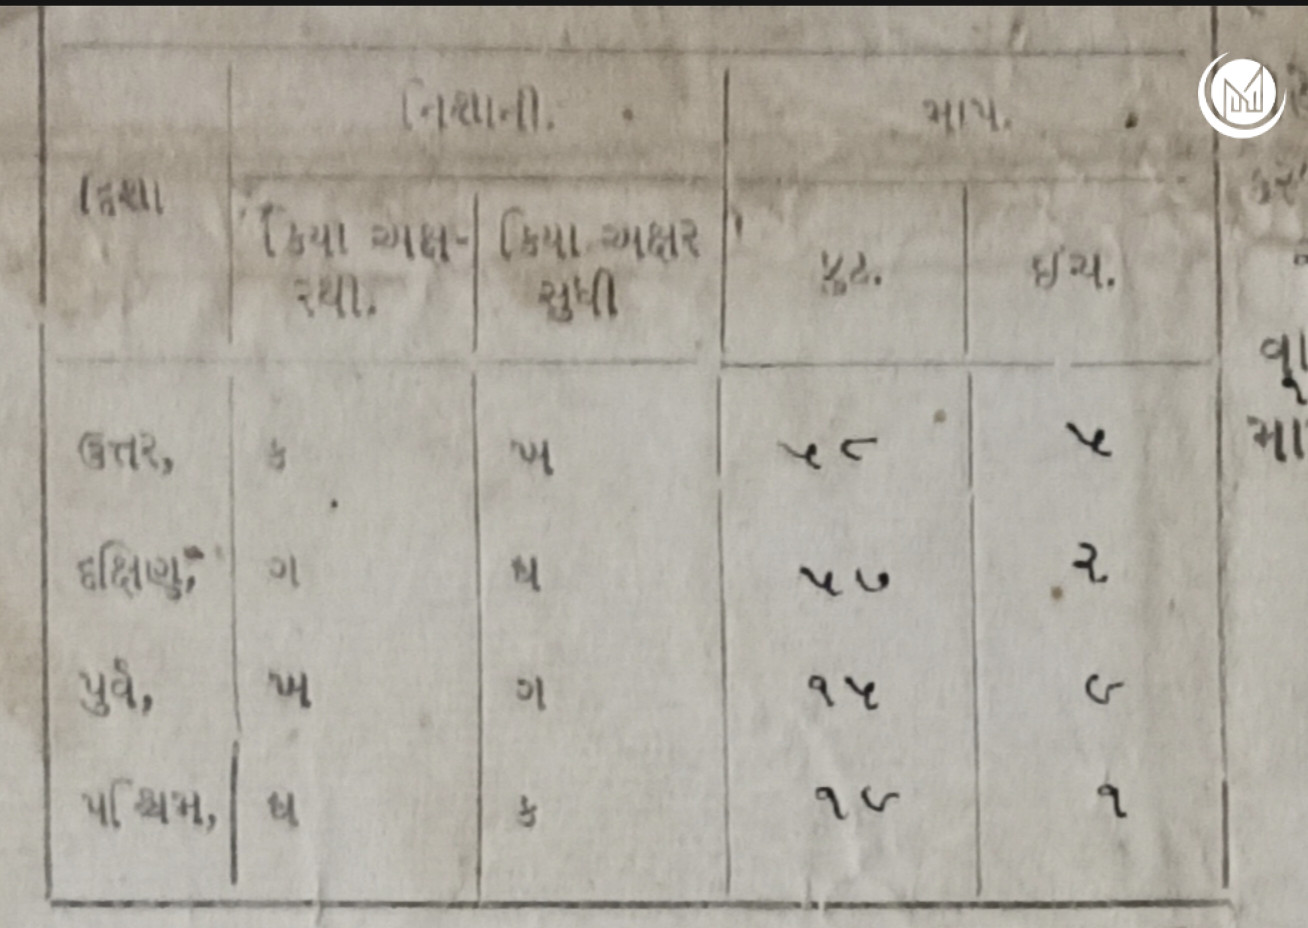 નિશાની. માપ.
દિશા
કિયા અક્ષ- કિયા અક્ષર
ફુટ. ઈંચ.
રથી. સુધી
ઉત્તર, ક ખ ૫૮ ૫
દક્ષિણ, ગ ઘ ૫૭ ૨
પુર્વ, ખ ગ ૧૫ ૯
પશ્ચિમ, ઘ ક ૧૯ ૧